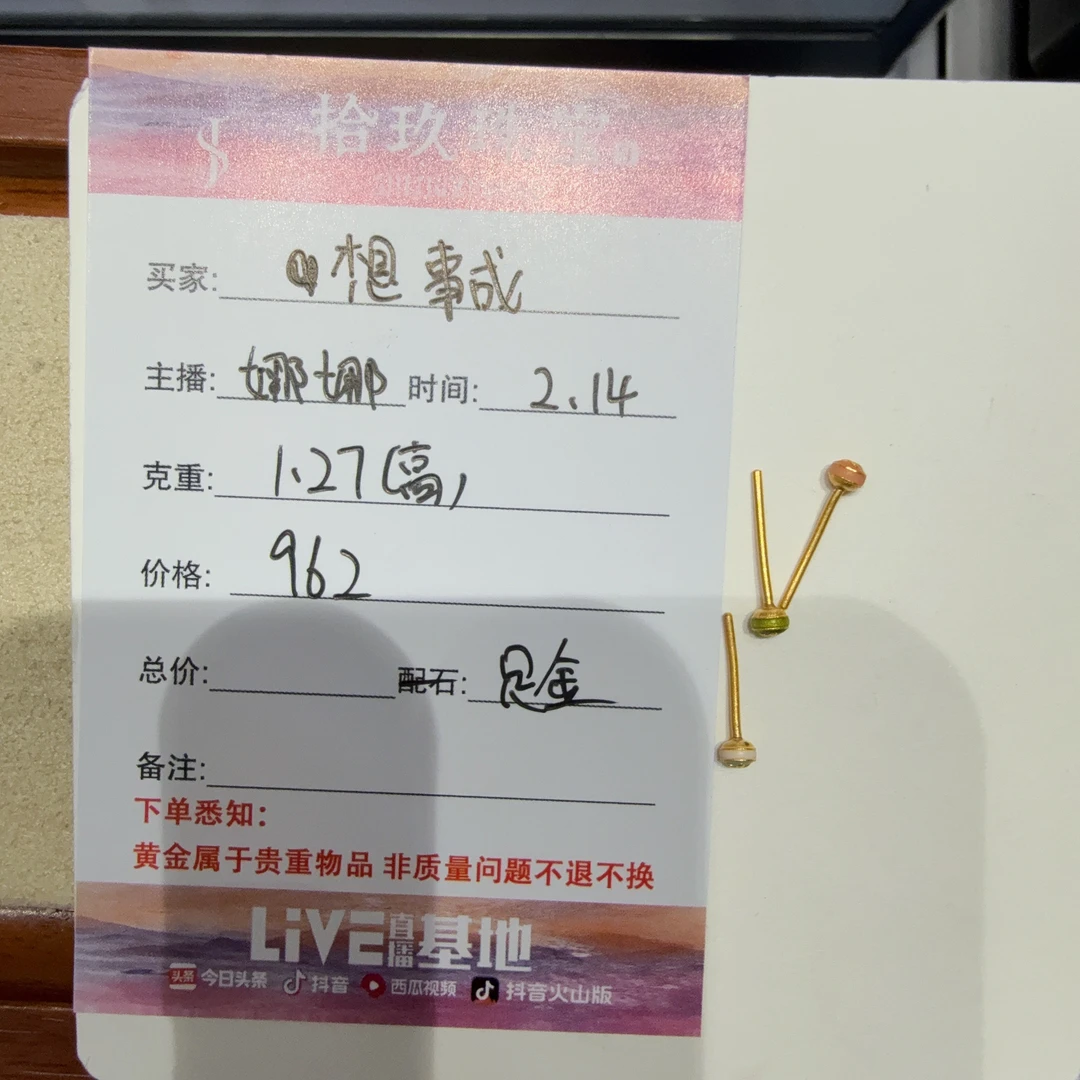 拾玖珠宝
买家: 想事成
主播: 娜娜 时间: 2.14
克重: 1.27(高)
价格: 962
总价: 配石: 足金
备注:
下单悉知:
黄金属于贵重物品 非质量问题不退不换
LiVE直播基地
头条 今日头条 抖音 西瓜视频 抖音火山版